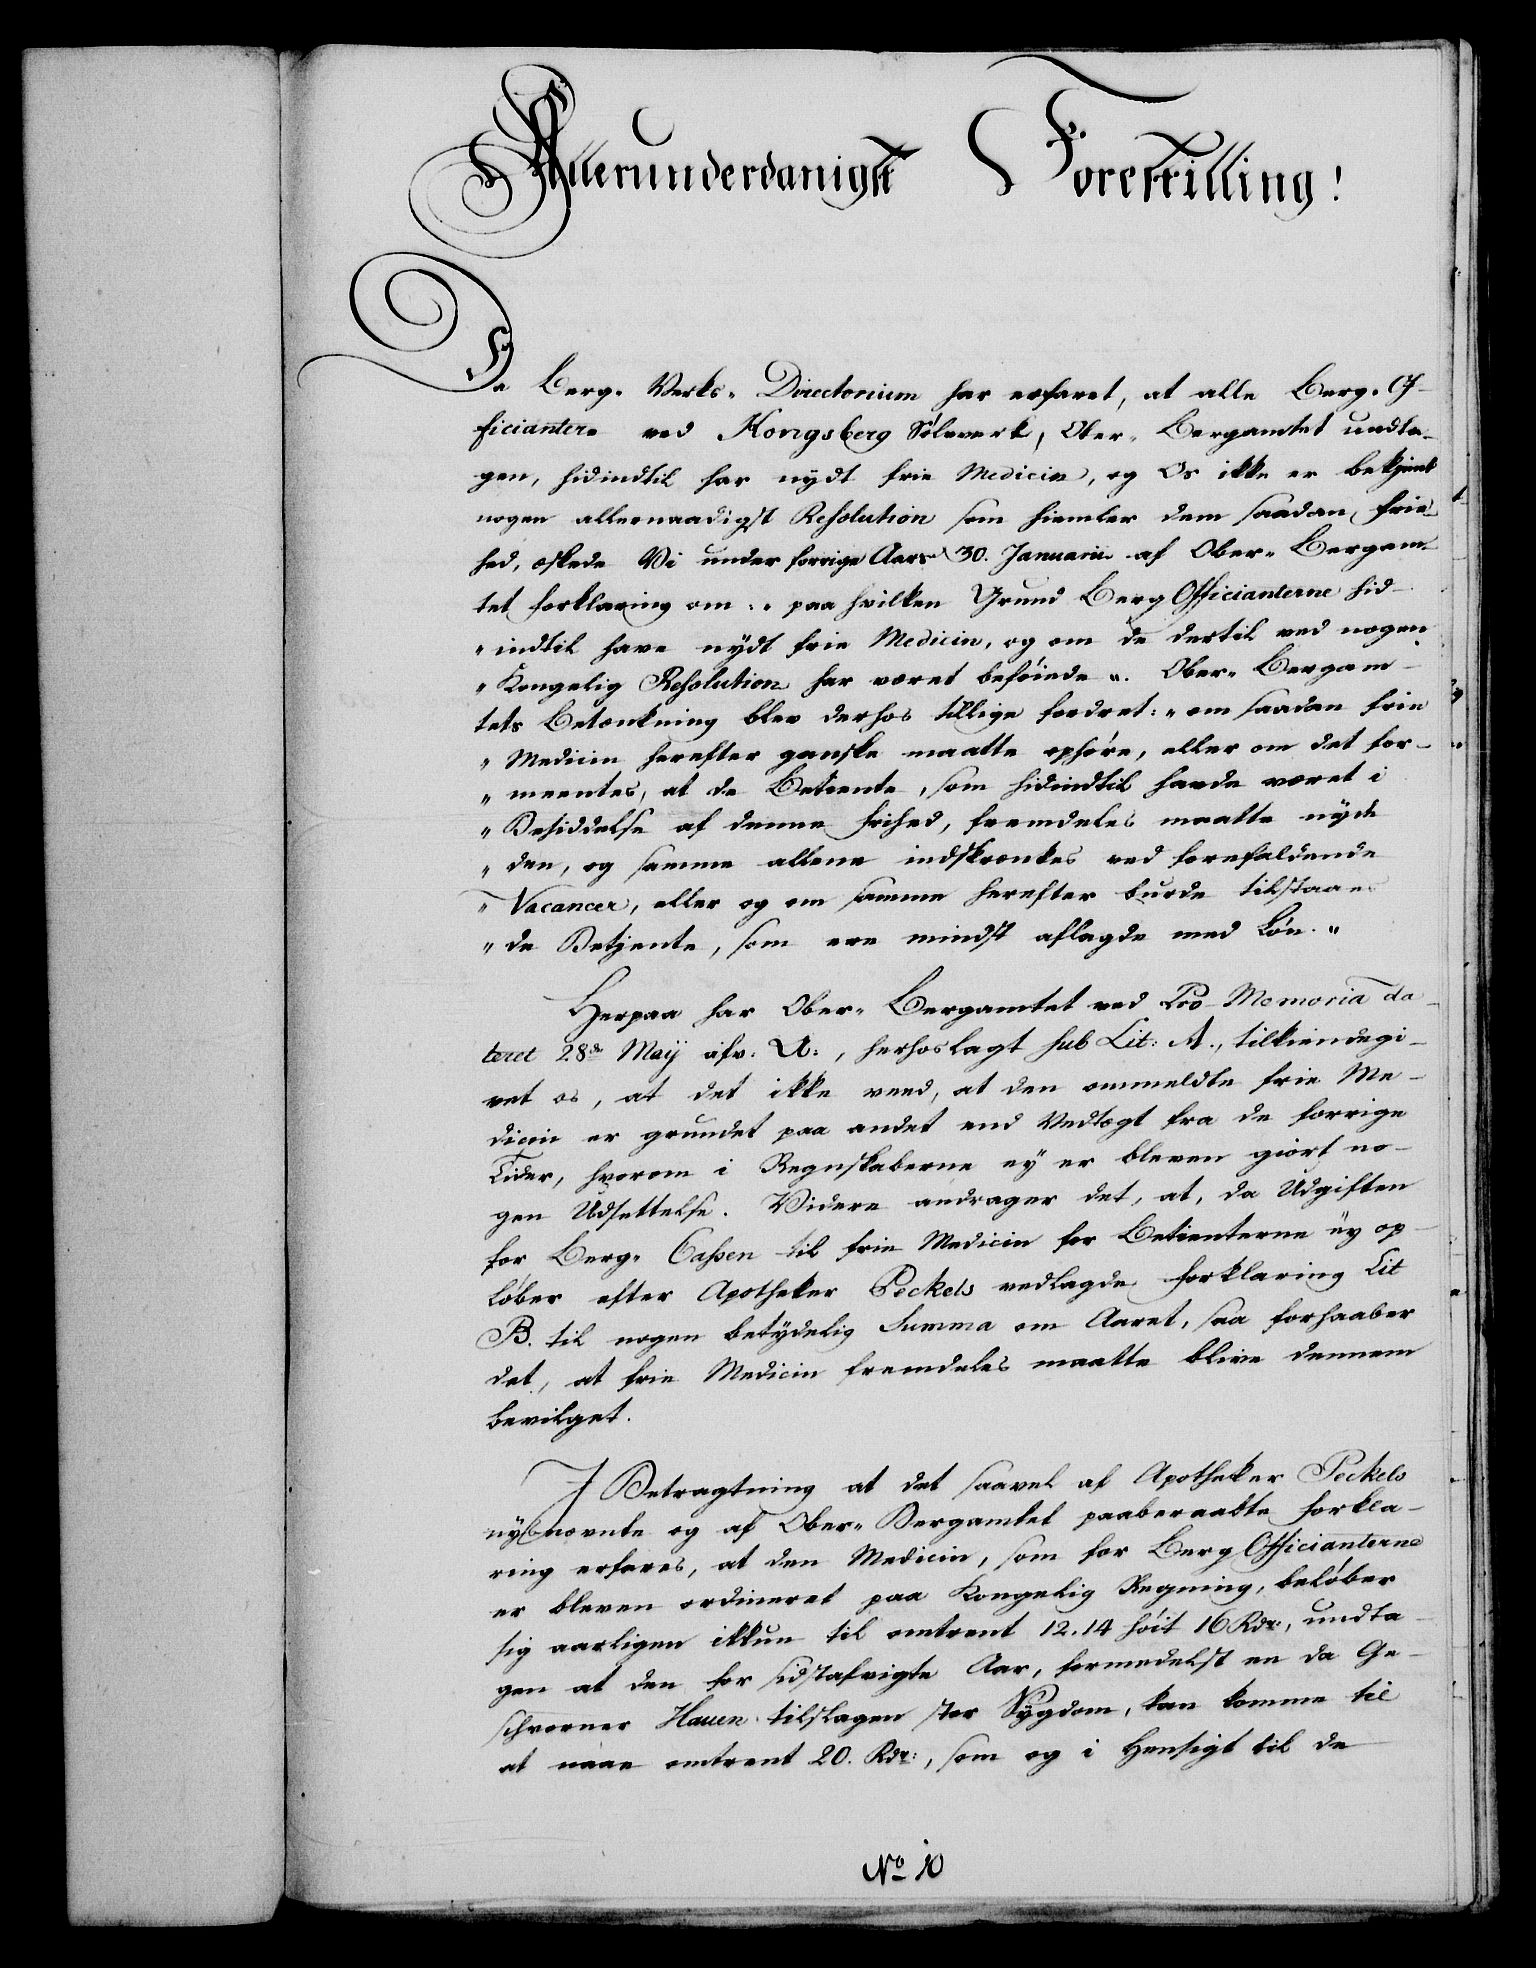 Allerunderdanigst Forestilling!
Da Berg-Verks-Directorium har erfaret, at alle Berg-Of-
ficianter ved Kongsberg Sølvverk, Ober-Bergamtet undta-
gen, hidindtil har nydt frie Medicin, og Os ikke er bekjendt
nogen allernaadigst Resolution som hiemler dem saadan frie-
hed, æskede Vi under forrige Aars 30. Januarii af Ober-Bergam-
tet forklaring om: „paa hvilken Grund Berg Officianterne hid-
„indtil have nydt frie Medicin, og om de dertil ved nogen
„Kongelig Resolution har været beføiede“. Ober-Bergam-
tets Betænkning blev derhos tillige fordret: „om saadan frie
„Medicin herefter ganske maatte ophøre, eller om det for-
„meentes, at de Betiente, som hidindtil havde været i
„Besiddelse af denne frihed, fremdeles maatte nyde
„den, og samme allene indskrænkes ved forefaldende
„Vacancer, eller og om samme herefter burde tilstaaes
„de Betjente, som ere mindst aflagde med Løn.“
Herpaa har Ober-Bergamtet ved Pro-Memoria da-
teret 28de Maij afv: A:, herhoslagt sub Lit: A., tilkiendegi-
vet os, at det ikke veed, at den ommeldte frie Me-
dicin er grundet paa andet end Vedtægt fra de forrige
Tider, hvorom i Regnskaberne ej er bleven giort no-
gen Udsettelse. Videre andrager det, at, da Udgiften
for Berg-Cassen til frie Medicin for Betienterne ej op-
løber efter Apotheker Peckels vedlagde forklaring Lit
B. til nogen betydelig Summa om Aaret, saa forhaaber
det, at frie Medicin fremdeles maatte blive dennem
bevilget.
I Betragtning at det saavel af Apotheker Peckels
nysnævnte og af Ober-Bergamtet paaberaabte forkla-
ring erfares, at den Medicin, som for Berg Officianterne
er bleven ordineret paa Kongelig Regning, beløber
sig aarligen ikkun til omtrent 12. 14 høit 16 Rdr:, undta-
gen at den for sidstafvigte Aar, formedelst en da Ge-
schworner Hauen tilslagen stor Sygdom, kan komme til
at naae omtrent 20. Rdr:, som og i Hensigt til de
No 10